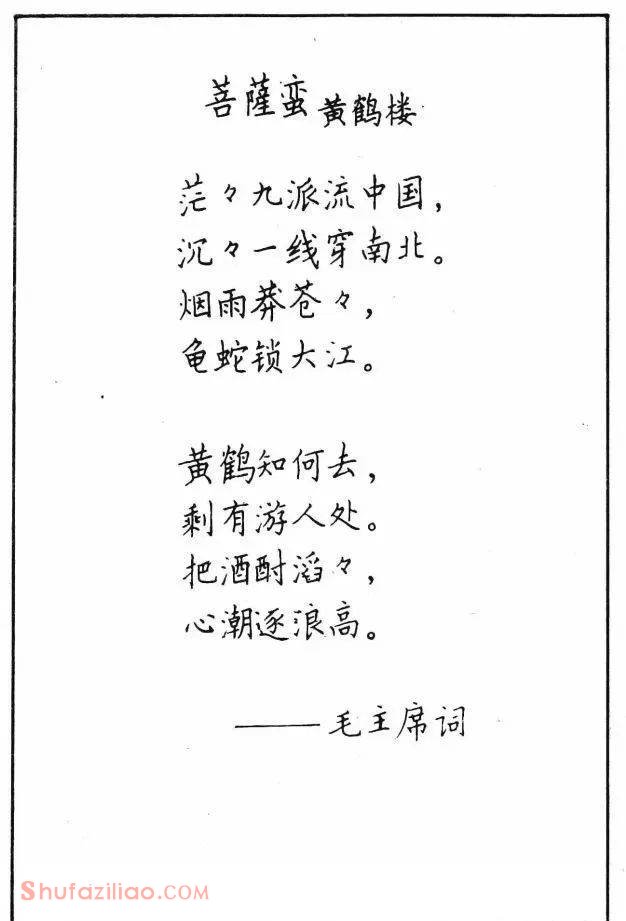 菩薩蛮 黄鹤楼
茫々九派流中国，
沉々一线穿南北。
烟雨莽苍々，
龟蛇锁大江。
黄鹤知何去，
剩有游人处。
把酒酎滔々，
心潮逐浪高。
——毛主席词
Shufaziliao.COM